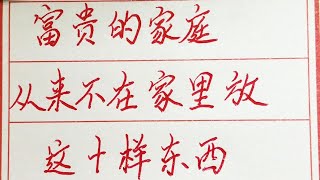 富贵的家庭
从来不在家里放
这十样东西